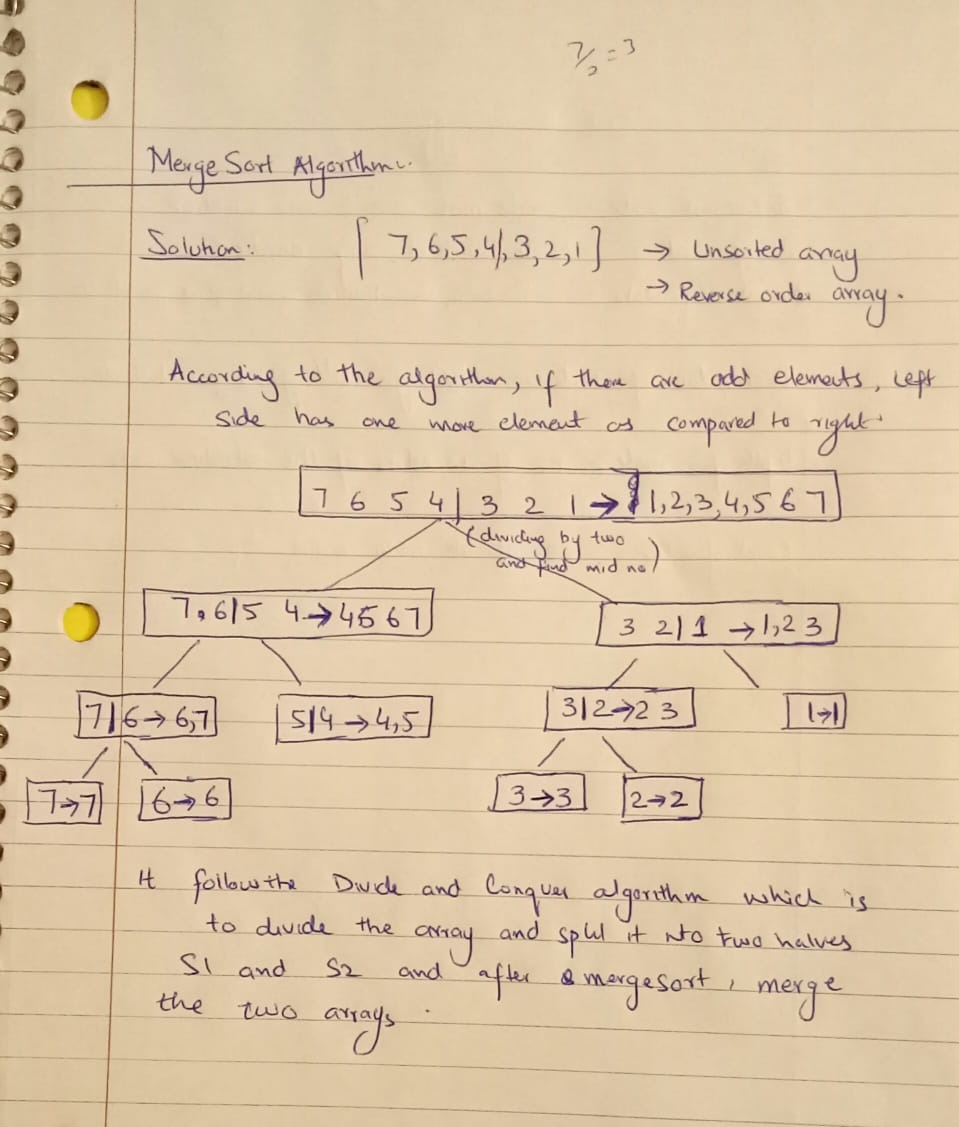 7/2 = 3
Merge Sort Algorithm.
Solution: [ 7, 6, 5, 4/, 3, 2, 1 ] → Unsorted array
→ Reverse order array.
According to the algorithm, if there are odd elements, left
side has one more element as compared to right.
7 6 5 4 | 3 2 1 → 1, 2, 3, 4, 5 6 7
(dividing by two
and find mid no)
7, 6 | 5 4 → 4 5 6 7
3 2 | 1 → 1, 2 3
7 | 6 → 6, 7
5 | 4 → 4, 5
3 | 2 → 2 3
1 → 1
7 → 7
6 → 6
3 → 3
2 → 2
It follow the Divide and Conquer algorithm which is
to divide the array and split it into two halves
S1 and S2 and after mergesort, merge
the two arrays.